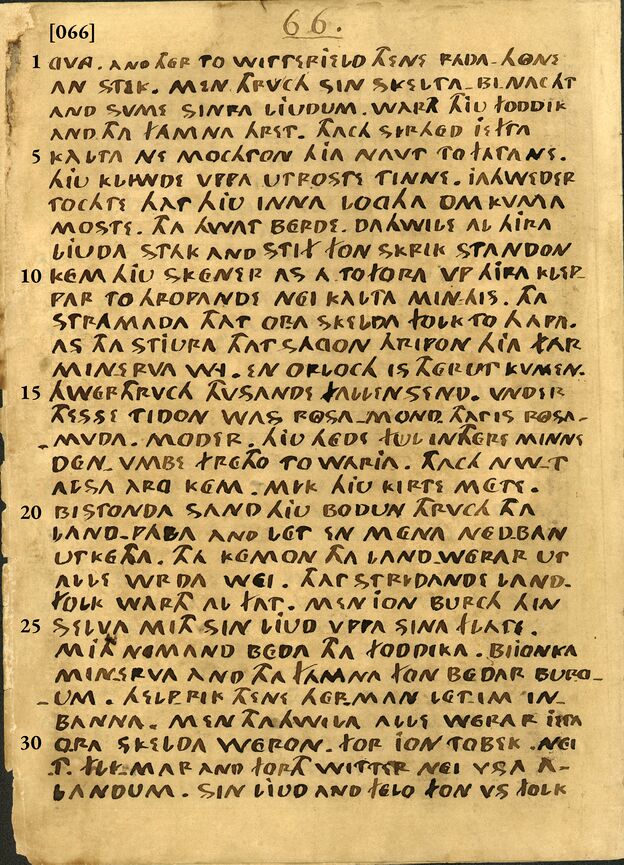 AVA. AND THER TO WITTERFIELD THENE RADA-HONE
AN STEK. MEN THRVCH SIN SKELTA-BI-NACHT
AND SVME SINRA LIUDUM. WARTH THIU FODDIK
AND THA FAMNA HRET. THACH SERHED IEFTHA
KALTA NE MOCHTON HIA NAVT TO FATANE.
HIU KLIWDE VPPA UTROSTE TINNE. IAHWEDER
TOCHTE THAT HIU INNA LOGHA OMKVMA
MOSTE. THA HWAT BERDE. DAHWILE AL HIRA
LIUDA STAK AND STIF FON SKRIK STANDON
KEM HIU SKENER AS A TOFORA VP HIRA KLEP-
PAR TO HROPANDE NEI KALTA MIN-HIS. THA
STRAMADA THAT ORA SKELDA FOLK TO HAPA.
AS THA STIURA THAT SAGON HRIPON HIA FAR
MINERVA WI. EN ORLOCH IS THERUT KVMEN.
HWERTHRVCH THVSANDE FALLEN SEND. VNDER
THESSE TIDON WAS ROSA-MOND. THAT IS ROSA-
-MVDA. MODER. HIU HEDE FUL IN THERE MINNE
DEN. VMBE FRETHO TO WARIA. THACH NW-T
ALSA ARG KEM. MEK HIU KIRTE METE.
BISTONDA SAND HIU BODUN THRVCH THA
LAND-PALA AND LET EN MENA NED-BAN
UTKETHA. THA KEMON THA LAND-WERAR UT
ALLE WRDA WEI. THAT STRIDANDE LAND-
FOLK WARTH AL FAT. MEN ION BURCH HIN
SELVA MITH SIN LIUD VPPA SINA FLATE.
MITH NEMAND BEDA THA FODDIKA. BIIONKA
MINERVA AND THA FAMNA FON BEDAR BURG-
-UM. HELPRIK THENE HERMAN LET-IM IN-
BANNA. MEN THAHWILA ALLE WERAR IETA
ORA SKELDA WERON. FOR ION TOBEK. NEI
T. FLI-MAR AND FORTH WITTER NEI VSA A-
LANDUM. SIN LIUD AND FELO FON VS FOLK